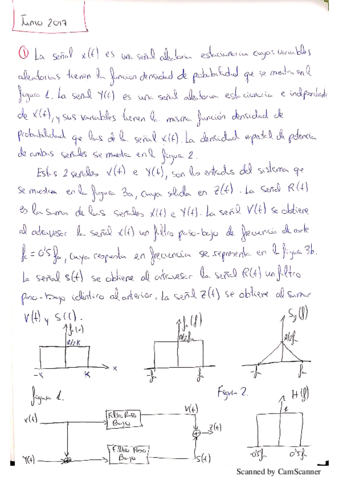 Junio 2017
① La señal X(t) es una señal aleatoria estacionaria cuyas variables
aleatorias tienen la función densidad de probabilidad que se muestra en la
figura 1. La señal Y(t) es una señal aleatoria estacionaria e independiente
de X(t), y sus variables tienen la misma función densidad de
probabilidad que las de la señal X(t). La densidad espectral de potencia
de ambas señales se muestra en la figura 2.
Estas 2 señales X(t) e Y(t), son las entradas del sistema que
se muestra en la figura 3a, cuya salida es Z(t). La señal R(t)
es la suma de las señales X(t) e Y(t). La señal V(t) se obtiene
al atravesar la señal X(t) un filtro paso-bajo de frecuencia de corte
fc = 0'5fm, cuya respuesta en frecuencia se representa en la figura 3b.
La señal S(t) se obtiene al atravesar la señal R(t) un filtro
paso-bajo idéntico al anterior. La señal Z(t) se obtiene al sumar
V(t) y S(t).
-K K x
Figura 1.
Figura 2.
X(t) Filtro Paso Bajo V(t) Z(t) H(f)
Y(t) Filtro Paso Bajo S(t) 0'5fm 0'5fm
Scanned by CamScanner